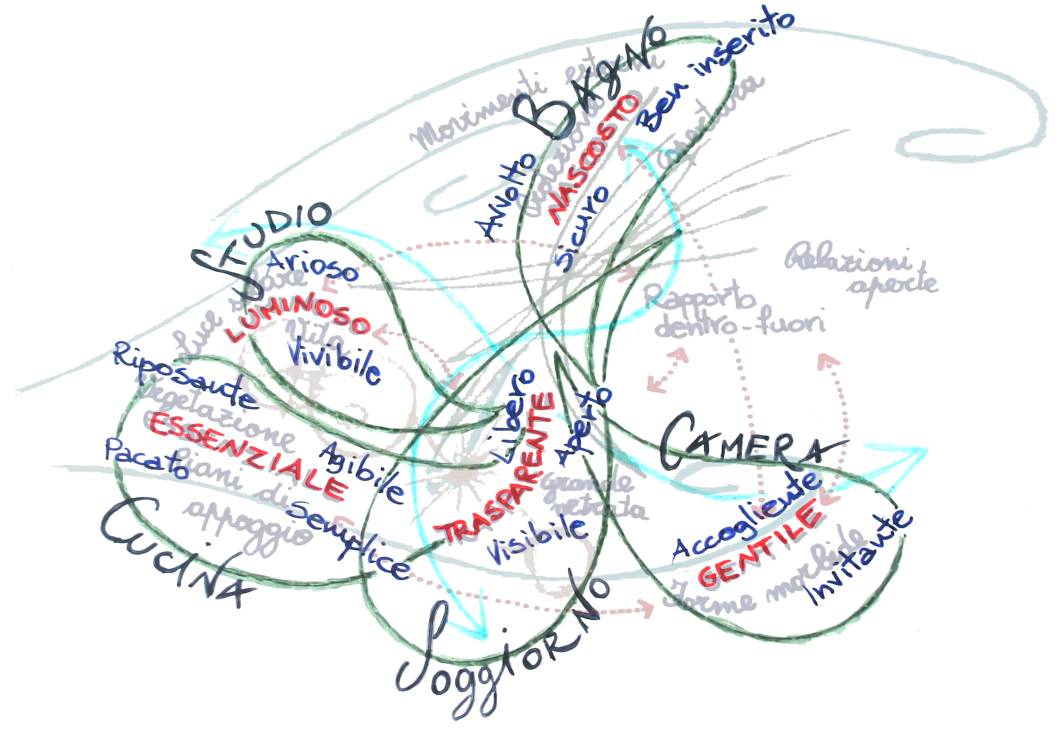 BAGNO
Ben inserito
Movimenti esterni
NASCOSTO
Avvolto
Sicuro
STUDIO
Arioso
LUMINOSO
Vivibile
Relazioni
aperte
Rapporto
dentro-fuori
Riposante
Vegetazione
ESSENZIALE
Agibile
Pacato
piani di
appoggio
Semplice
CUCINA
Libero
TRASPARENTE
Aperto
grande
vetrata
Visibile
SoggiorNo
CAMERA
Accogliente
GENTILE
Forme morbide
Invitante